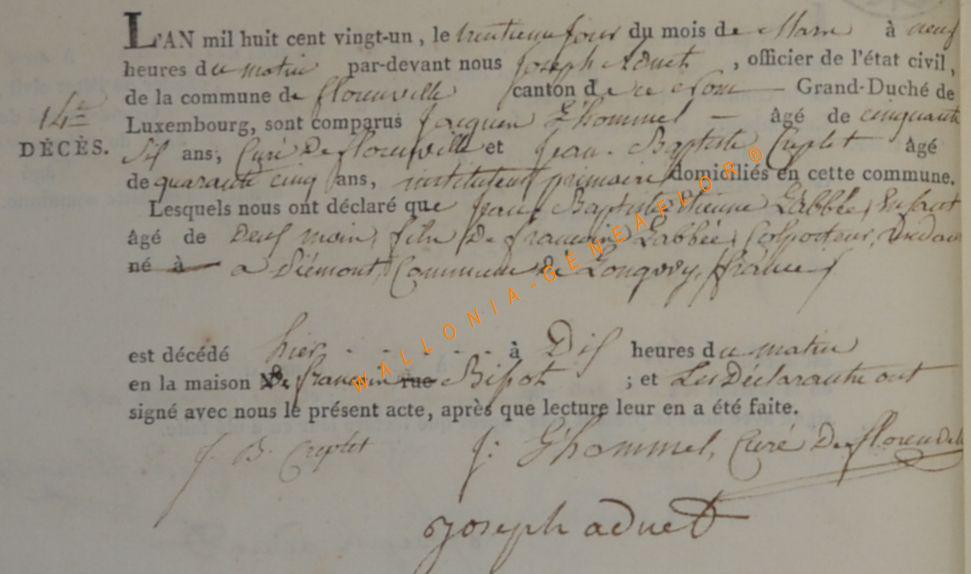 L'AN mil huit cent vingt-un, le trentieme jour du mois de Mars à neuf
heures du matin par-devant nous Joseph Aduet, officier de l'état civil,
de la commune de florenville canton de Grand-Duché de
14e
Luxembourg, sont comparus Jacques Lhommel — âgé de cinquante
DÉCÈS.
Six ans, Curé De florenville et Jean-Baptiste Creplet âgé
de quarante cinq ans, instituteur primaire domiciliés en cette commune.
Lesquels nous ont déclaré que Jean Baptiste Etienne Labbée, Enfant
âgé de Deux mois, fils De francois Labbée, Colporteur,
né à a Piémont, Commune de Longwy, france
est décédé hier à Dix heures du matin
en la maison N° De francois rue Bifot ; et Les Déclarants ont
signé avec nous le présent acte, après que lecture leur en a été faite.
J. B. Creplet
J: Lhommel, Curé De florenville
Joseph aduet
WALLONIA-GENEAFLOR®